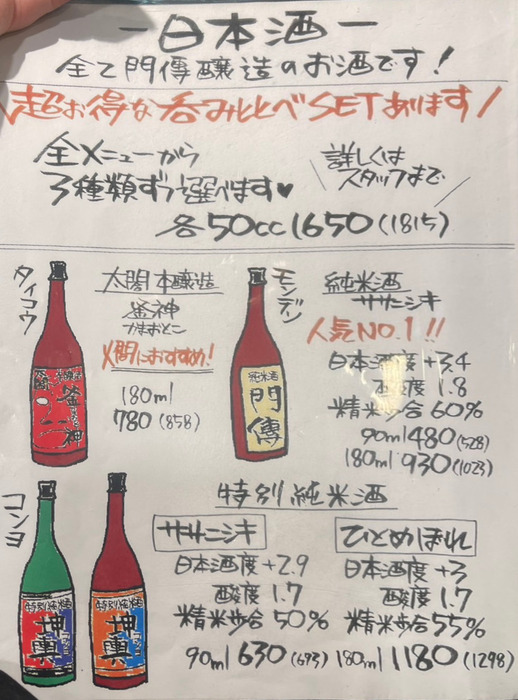 －日本酒－
全て門傳醸造のお酒です！
＼超お得な呑みくらべSETあります／
全メニューから
3種類ずつ選べます♥
＼詳しくは
スタッフまで／
各50cc 1650(1815)
タイコウ
太閤 本醸造
釜神
かまおとこ
〆間におすすめ！
180ml
780(858)
モンデン
純米酒
門傳
純米酒
ササニシキ
人気NO.1!!
日本酒度+3.4
酸度1.8
精米歩合60%
90ml 480(528)
180ml 930(1023)
コンヨ
特別純米酒
特別純米酒
特別純米酒
ササニシキ
日本酒度+2.9
酸度1.7
精米歩合50%
ひとめぼれ
日本酒度+3
酸度1.7
精米歩合55%
90ml 630(693) 180ml 1180(1298)